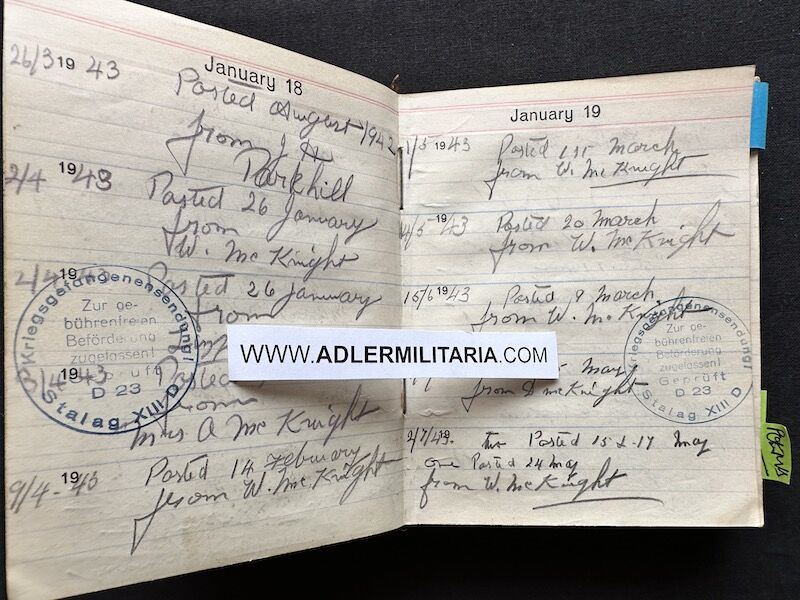 January 18
26/3 19 43
Posted August 1942
from J H
Parkhill
2/4 1943
Posted 26 January
from
W. McKnight
2/4 19 43
Posted 26 January
from
3/4 19 43
Posted
from
Mrs A McKnight
9/4 - 1943
Posted 14 February
from W. McKnight
Kriegsgefangenensendung!
Zur ge-
bührenfreien
Beförderung
zugelassen!
D 23
Stalag XIII D
January 19
1/5 1943
Posted 1st March
from W. McKnight
4/5 1943
Posted 20 March
from W. McKnight
15/6 1943
Posted 9 March
from W. McKnight
May
from McKnight
2/7/43. two Posted 15 & 17 May
one Posted 24 May
from W. McKnight
Kriegsgefangenensendung!
Zur ge-
bührenfreien
Beförderung
zugelassen!
Geprüft
D 23
Stalag XIII D
WWW.ADLERMILITARIA.COM
POEMS